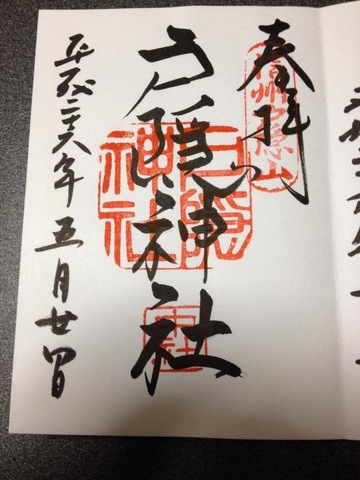 奉拝
信州戸隠山
戸隠神社
戸隠
神社
中社
平成二十六年五月廿四日